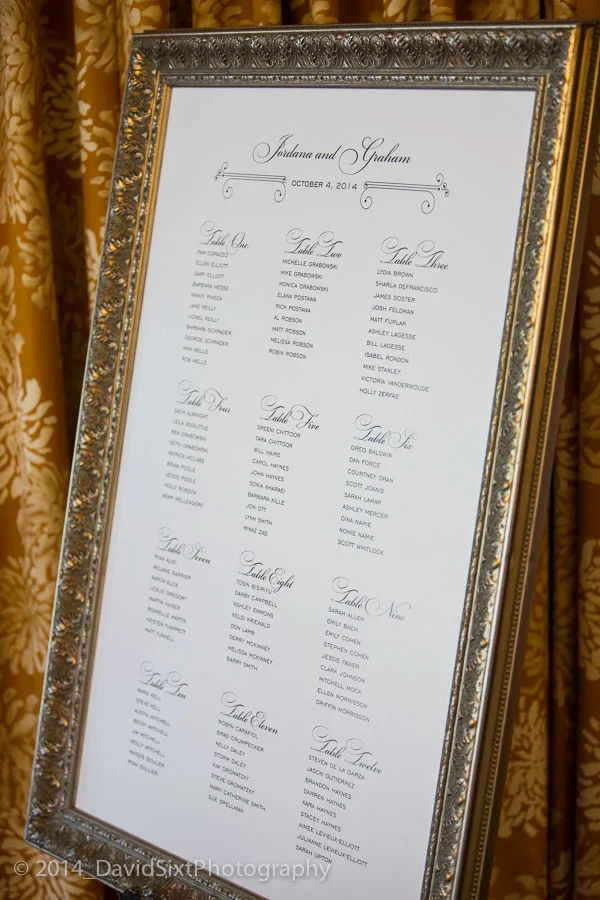 Jordana and Graham
OCTOBER 4, 2014
Table One
PAM CORAZZO
ELLEN ELLIOTT
GARY ELLIOTT
BARBARA HESSE
RANDY PINEDA
JANE REILLY
LIONEL REILLY
BARBARA SCHRADER
GEORGE SCHRADER
MIMI WELLS
ROB WELLS
Table Two
MICHELLE GRABOWSKI
MIKE GRABOWSKI
MONICA GRABOWSKI
ELANA POSTAWA
RICK POSTAWA
AL ROBSON
MATT ROBSON
MELISSA ROBSON
ROBIN ROBSON
Table Three
LYDIA BROWN
SHARLA DEFRANCISCO
JAMES DOSTER
JOSH FELDMAN
MATT FURLAN
ASHLEY LAGESSE
BILL LAGESSE
ISABEL RONDON
MIKE STANLEY
VICTORIA VANDERWOUDE
HOLLY ZERFAS
Table Four
ZACH ALBRIGHT
LEILA DOOLITTLE
BEN GRABOWSKI
KEITH GRABOWSKI
PATRICK MCCABE
BRIAN POOLE
JESSIE POOLE
HOLLY ROBSON
ADAM WELLENDORF
Table Five
SREENI CHITTOOR
TARA CHITTOOR
BILL HAIRE
CAROL HAYNES
JOHN HAYNES
SONIA KHARAEI
BARBARA KILLE
JON OTT
LYNN SMITH
MINAZ ZAD
Table Six
GREG BALDWIN
DAN FORCE
COURTNEY GRAN
SCOTT JOANIS
SARAH LAMAR
ASHLEY MERCER
GINA NAMIE
NOMIE NAMIE
SCOTT WHITLOCK
Table Seven
RYAN AUST
MELANIE BARRIER
AARON ELDIE
LESLIE GREGORY
MARTIN KAISER
BONNELLE MARTIN
KRISTEN THARPETT
MATT TUNNELL
Table Eight
TOSIN BISIRIYU
DARBY CAMPBELL
ASHLEY EMMONS
KELSI KRIEWALD
DON LAMB
DERRY MCKINNEY
MELISSA MCKINNEY
BARRY SMITH
Table Nine
SARAH ALLEN
EMILY BACH
EMILY COHEN
STEPHEN COHEN
JESSIE FAWER
CLARK JOHNSON
MITCHELL MOCK
ELLEN MORRISON
GRIFFIN MORRISON
Table Ten
MARIA KELL
STEVE KELL
ALISHA MITCHELL
BECKY MITCHELL
JIM MITCHELL
MOLLY MITCHELL
MAGGIE SOULIER
RYAN SOULIER
Table Eleven
ROBYN CARAFIOL
BRAD CRUMPECKER
KELLY DALEY
STORM DALEY
KIM GROMATZKY
STEVE GROMATZKY
MARY CATHERINE SMITH
SUE SPELLMAN
Table Twelve
STEVEN DE LA GARZA
JASON GUTIERREZ
BRANDON HAYNES
DARREN HAYNES
KARA HAYNES
STACEY HAYNES
AIMEE LEVIEUX-ELLIOTT
JULIANNE LEVIEUX-ELLIOTT
SARAH UPTON
© 2014_DavidSixtPhotography